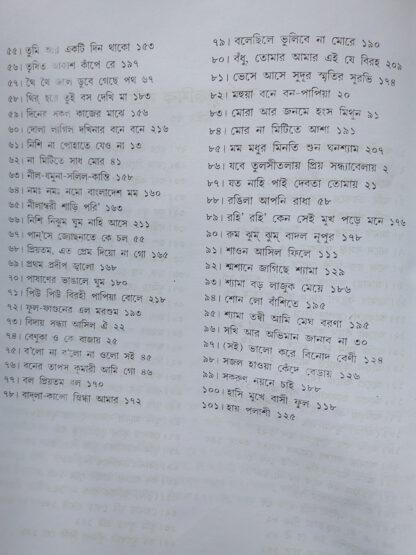 ৫৫। তুমি আর একটি দিন থাকো ১৫৩
৫৬। তৃষিত আকাশ কাঁপে রে ১৯৭
৫৭। থৈ থৈ জলে ডুবে গেছে পথ ৬৭
৫৮। থির্ হয়ে তুই বস দেখি মা ১৮৩
৫৯। দিনের সকল কাজের মাঝে ১৫৬
৬০। দোলা লাগিল দখিনার বনে বনে ২১৬
৬১। নিশি না পোহাতে যেও না ১৩
৬২। না মিটিতে সাধ মোর ৪১
৬৩। নীল-যমুনা-সলিল-কান্তি ১৫৮
৬৪। নমঃ নমঃ নমো বাংলাদেশ মম ১৬০
৬৫। নীলাম্বরী শাড়ি পরি' ১৬৩
৬৬। নিশি নিঝুম ঘুম নাহি আসে ২১১
৬৭। পান্সে জোছনাতে কে চল ৫৫
৬৮। প্রিয়তম, এত প্রেম দিয়ো না গো ১৬৫
৬৯। প্রথম প্রদীপ জ্বালো ১৬৮
৭০। পাষাণের ভাঙালে ঘুম ১৮০
৭১। পিউ পিউ বিরহী পাপিয়া বোলে ২১৮
৭২। ফুল-ফাগুনের এল মরশুম ১৯৩
৭৩। বিদায় সন্ধ্যা আসিল ঐ ২২
৭৪। বেণুকা ও কে বাজায় ২৫
৭৫। ব'লো না ব'লো না ওলো সই ৪৫
৭৬। বনের তাপস কুমারী আমি গো ৪৬
৭৭। বল প্রিয়তম বল ১৭০
৭৮। বাদ্‌লা-কালো স্নিগ্ধা আমার ১৭২
৭৯। বলেছিলে ভুলিবে না মোরে ১৯০
৮০। বঁধু, তোমার আমার এই যে বিরহ ২০৯
৮১। ভেসে আসে সুদূর স্মৃতির সুরভি ১৭৪
৮২। মহুয়া বনে বন-পাপিয়া ২০
৮৩। মোরা আর জনমে হংস মিথুন ৯১
৮৪। মোর না মিটিতে আশা ১৯১
৮৫। মম মধুর মিনতি শুন ঘনশ্যাম ২০৭
৮৬। যবে তুলসীতলায় প্রিয় সন্ধ্যাবেলায় ২
৮৭। যত নাহি পাই দেবতা তোমায় ২১
৮৮। রঙিলা আপনি রাধা ৫৮
৮৯। রহি' রহি' কেন সেই মুখ পড়ে মনে ১৭৬
৯০। রুম ঝুম্ ঝুম্ বাদল নূপুর ১৭৮
৯১। শাওন আসিল ফিরে ১১১
৯২। শ্মশানে জাগিছে শ্যামা ১২৯
৯৩। শ্যামা বড় লাজুক মেয়ে ১৮৬
৯৪। শোন লো বাঁশিতে ১৯৫
৯৫। শ্যামা তন্বী আমি মেঘ বরণা ১৯৫
৯৬। সখি আর অভিমান জানাব না ৩০
৯৭। (সই) ভালো করে বিনোদ বেণী ১২৪
৯৮। সজল হাওয়া কেঁদে বেড়ায় ১২৬
৯৯। সকরুণ নয়নে চাই ১৮৮
১০০। হাসি মুখে বাসী ফুল ১১৮
১০১। হায় পলাশী ১২৫